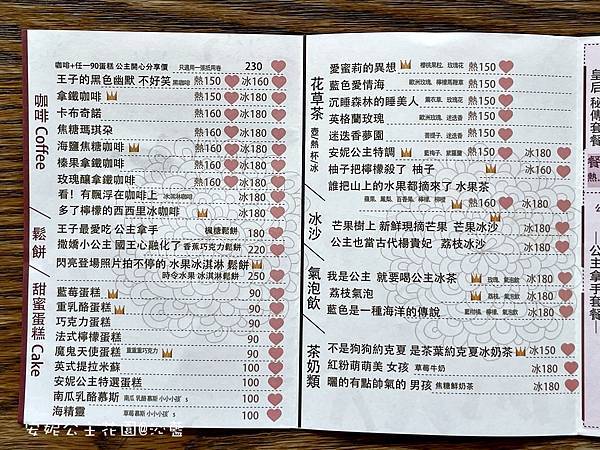 咖啡 Coffee
咖啡+任一90蛋糕 公主開心分享價 只適用一張抵用卷 230
王子的黑色幽默 不好笑 黑咖啡 熱150 冰160
拿鐵咖啡 熱160 冰180
卡布奇諾 熱160 冰180
焦糖瑪琪朵 熱160 冰180
海鹽焦糖咖啡 熱160 冰180
榛果拿鐵咖啡 熱160 冰180
玫瑰釀拿鐵咖啡 熱160 冰180
看！有飄浮在咖啡上 冰淇淋咖啡 冰180
多了檸檬的西西里冰咖啡 冰180
鬆餅
王子最愛吃 公主拿手 楓糖鬆餅 180
撒嬌小公主 國王心融化了 香蕉巧克力鬆餅 220
閃亮登場照片拍不停的 水果冰淇淋 鬆餅
時令水果 冰淇淋鬆餅 250
甜蜜蛋糕 Cake
藍莓蛋糕 90
重乳酪蛋糕 90
巧克力蛋糕 90
法式檸檬蛋糕 90
魔鬼天使蛋糕 重重重巧克力 90
英式提拉米蘇 100
安妮公主特選蛋糕 100
南瓜乳酪慕斯 南瓜 乳酪 慕斯 小小小孩's 100
海精靈 草莓 慕斯 小小小孩's 100
花草茶 壺熱 杯冰
愛蜜莉的異想 櫻桃果粒、玫瑰花 熱150
藍色愛情海 歐洲玫瑰、檸檬馬鞭草 熱150
沉睡森林的睡美人 薰衣草、玫瑰花 熱150
英格蘭玫瑰 歐洲玫瑰、迷迭香 熱150
迷迭香夢園 菩提子、迷迭香 熱150
安妮公主特調 藍柑子、紫羅蘭 熱150 冰180
柚子把檸檬殺了 柚子 熱160 冰160
誰把山上的水果都摘來了 水果茶
蘋果、鳳梨、百香果、檸檬、柳橙 熱160 冰160
冰沙
芒果樹上 新鮮現摘芒果 芒果冰沙 冰180
公主也當古代楊貴妃 荔枝冰沙 冰180
氣泡飲
我是公主 就要喝公主冰茶 玫瑰、氣泡飲 冰180
荔枝氣泡 荔枝、氣泡飲 冰180
藍色是一種海洋的傳說 藍柑橘、檸檬、氣泡飲 冰180
茶奶類
不是狗狗約克夏 是茶葉約克夏冰奶茶 冰150
紅粉萌萌美 女孩 草莓牛奶 冰180
曬的有點帥氣的 男孩 焦糖鮮奶茶 冰180
皇后秘傳套餐
餐
熱
公主拿手套餐
安妮公主花園@沁醬